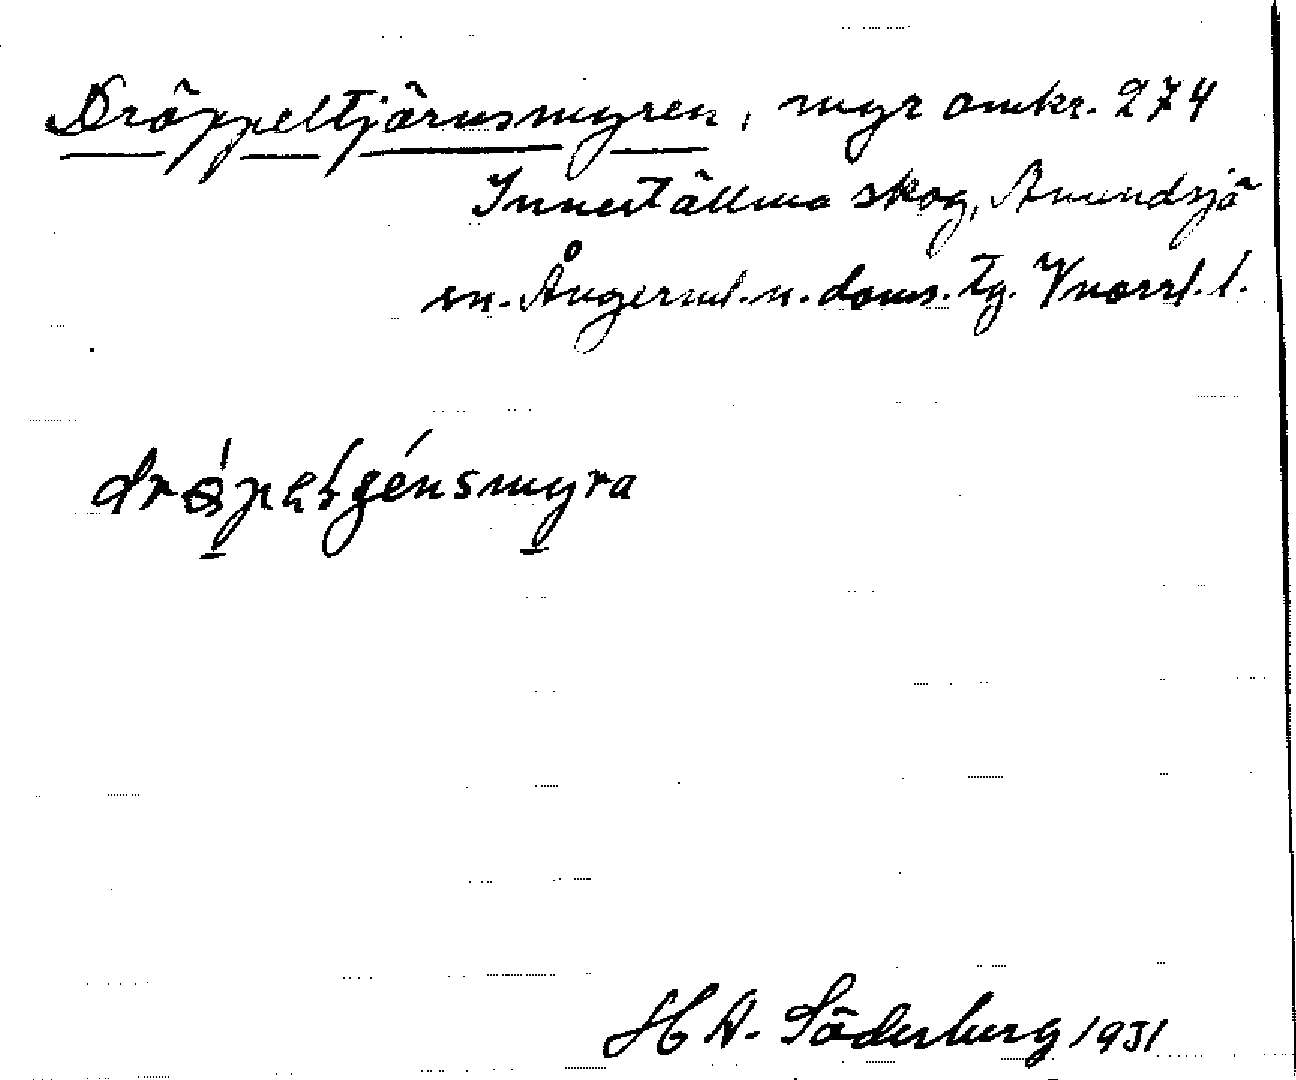 Dröppeltjärnsmyren, myr omkr. 274
Innertällmo skog, Anundsjö
sn. Ångerml. n. doms. tg. Vnorrl. l.
H A. Söderberg 1931